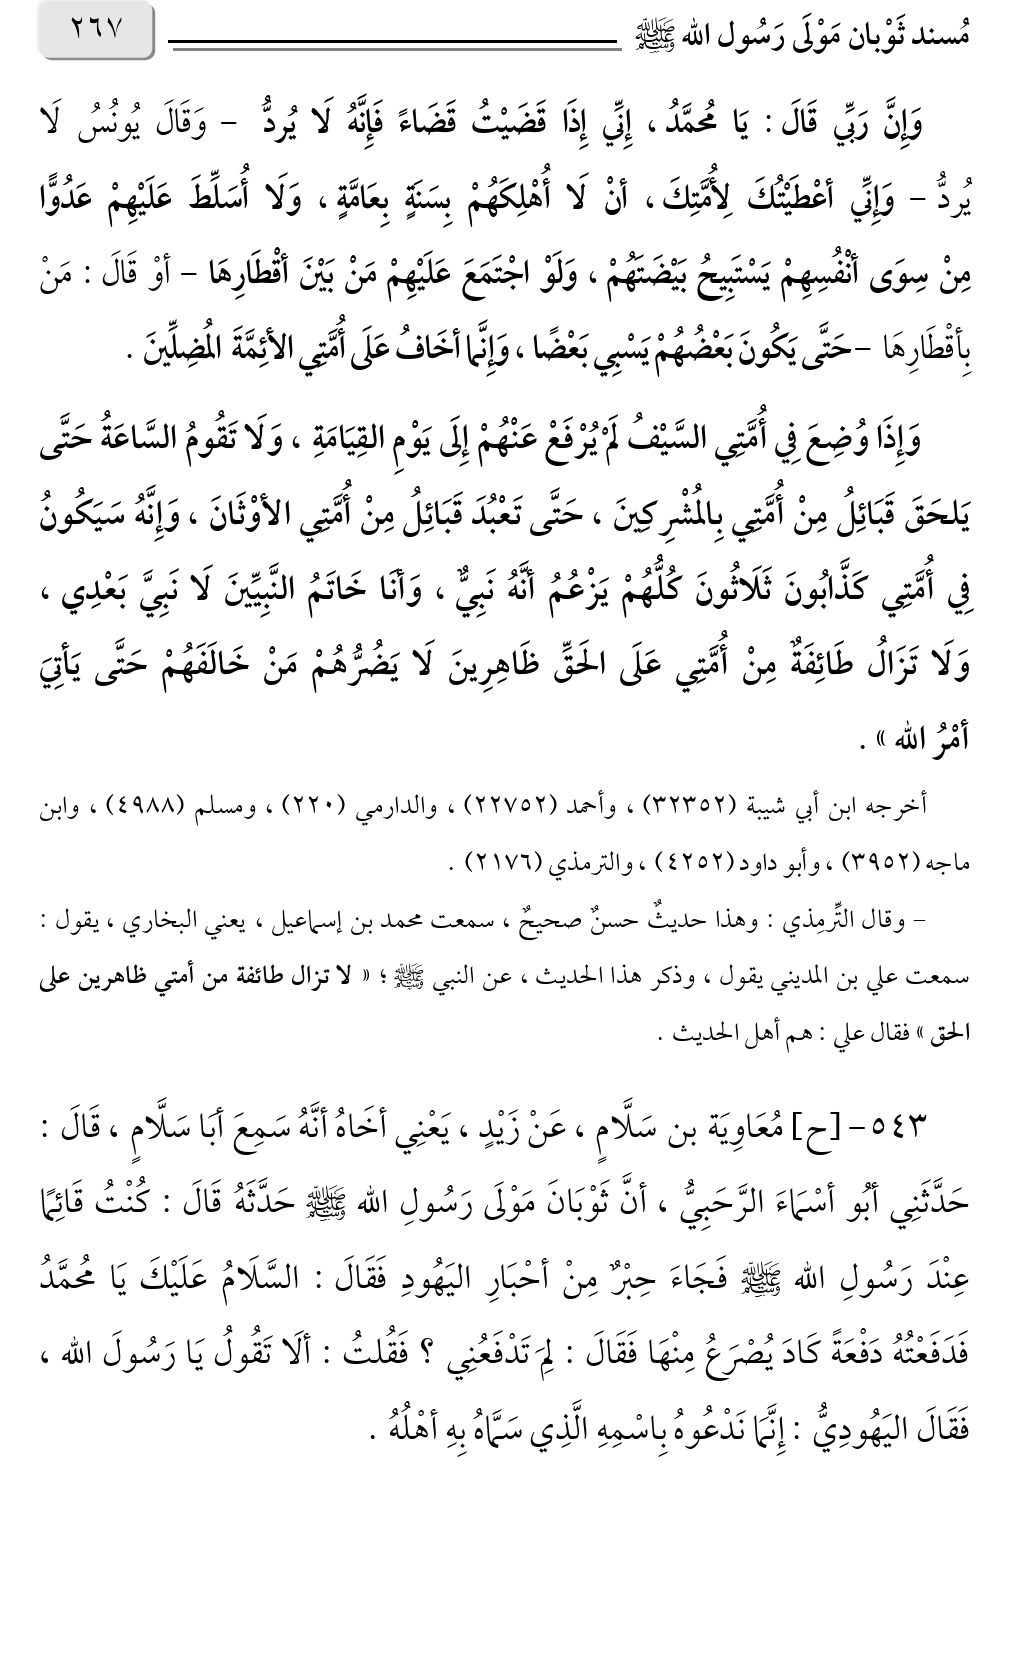 مُسند ثَوْبان مَوْلَى رَسُول الله ﷺ
٢٦٧
وَإِنَّ رَبِّي قَالَ : يَا مُحمَّدُ ، إِنِّي إِذَا قَضَيْتُ قَضَاءً فَإِنَّهُ لَا يُردُّ – وَقَالَ يُونُسُ لَا
يُردُّ – وَإِنِّي أعْطَيْتُكَ لِأُمَّتِكَ ، أنْ لَا أُهْلِكَهُمْ بِسَنَةٍ بِعَامَّةٍ ، وَلَا أُسَلِّطَ عَلَيْهِمْ عَدُوًّا
مِنْ سِوَى أنْفُسِهِمْ يَسْتَبِيحُ بَيْضَتَهُمْ ، وَلَوْ اجْتَمَعَ عَلَيْهِمْ مَنْ بَيْنَ أقْطَارِهَا – أوْ قَالَ : مَنْ
بِأقْطَارِهَا –حَتَّى يَكُونَ بَعْضُهُمْ يَسْبِي بَعْضًا ، وَإِنَّما أخَافُ عَلَى أُمَّتِي الأئِمَّةَ المُضِلِّينَ .
وَإِذَا وُضِعَ فِي أُمَّتِي السَّيْفُ لَمْ يُرْفَعْ عَنْهُمْ إِلَى يَوْمِ القِيَامَةِ ، وَلَا تَقُومُ السَّاعَةُ حَتَّى
يَلحَقَ قَبَائِلُ مِنْ أُمَّتِي بِالمُشْرِكِينَ ، حَتَّى تَعْبُدَ قَبَائِلُ مِنْ أُمَّتِي الأوْثَانَ ، وَإِنَّهُ سَيَكُونُ
فِي أُمَّتِي كَذَّابُونَ ثَلَاثُونَ كُلُّهُمْ يَزْعُمُ أنَّهُ نَبِيٌّ ، وَأنَا خَاتَمُ النَّبِيِّينَ لَا نَبِيَّ بَعْدِي ،
وَلَا تَزَالُ طَائِفَةٌ مِنْ أُمَّتِي عَلَى الحَقِّ ظَاهِرِينَ لَا يَضُرُّهُمْ مَنْ خَالَفَهُمْ حَتَّى يَأتِيَ
أمْرُ الله » .
أخرجه ابن أبي شيبة (٣٢٣٥٢) ، وأحمد (٢٢٧٥٢) ، والدارمي (٢٢٠) ، ومسلم (٤٩٨٨) ، وابن
ماجه (٣٩٥٢) ، وأبو داود (٤٢٥٢) ، والترمذي (٢١٧٦) .
– وقال التِّرمِذي : وهذا حديثٌ حسنٌ صحيحٌ ، سمعت محمد بن إسماعيل ، يعني البخاري ، يقول :
سمعت علي بن المديني يقول ، وذكر هذا الحديث ، عن النبي ﷺ ؛ « لا تزال طائفة من أمتي ظاهرين على
الحق » فقال علي : هم أهل الحديث .
٥٤٣– [ح] مُعَاوِيَة بن سَلَّامٍ ، عَنْ زَيْدٍ ، يَعْنِي أخَاهُ أنَّهُ سَمِعَ أبَا سَلَّامٍ ، قَالَ :
حَدَّثَنِي أبُو أسْمَاءَ الرَّحَبِيُّ ، أنَّ ثَوْبَانَ مَوْلَى رَسُولِ الله ﷺ حَدَّثَهُ قَالَ : كُنْتُ قَائِمًا
عِنْدَ رَسُولِ الله ﷺ فَجَاءَ حِبْرٌ مِنْ أحْبَارِ اليَهُودِ فَقَالَ : السَّلَامُ عَلَيْكَ يَا مُحمَّدُ
فَدَفَعْتُهُ دَفْعَةً كَادَ يُصْرَعُ مِنْهَا فَقَالَ : لِمَ تَدْفَعُنِي ؟ فَقُلتُ : ألَا تَقُولُ يَا رَسُولَ الله ،
فَقَالَ اليَهُودِيُّ : إِنَّمَا نَدْعُوهُ بِاسْمِهِ الَّذِي سَمَّاهُ بِهِ أهْلُهُ .